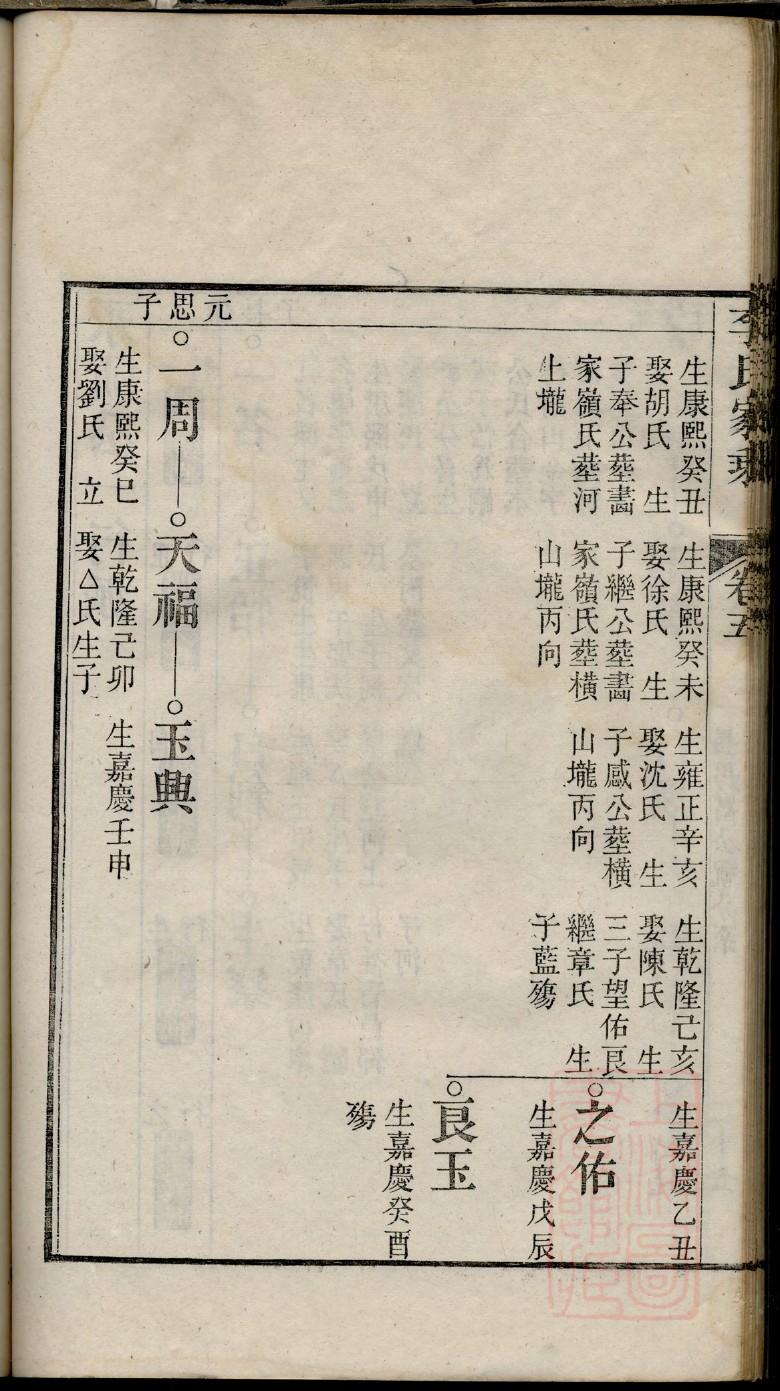 李氏家乘
卷五
生康熙癸丑
娶胡氏　生
子奉公塟畵
家嶺氏塟河
上壠
生康熙癸未
娶徐氏　生
子繼公塟畵
家嶺氏塟橫
山壠丙向
生雍正辛亥
娶沈氏　生
子感公塟橫
山壠丙向
生乾隆己亥
娶陳氏　生
三子望佑良
繼章氏　生
子藍殤
生嘉慶乙丑
之佑
生嘉慶戊辰
良玉
生嘉慶癸酉
殤
元思子
一周
生康熙癸巳
娶劉氏　立
天福
生乾隆己卯
娶△氏生子
玉典
生嘉慶壬申